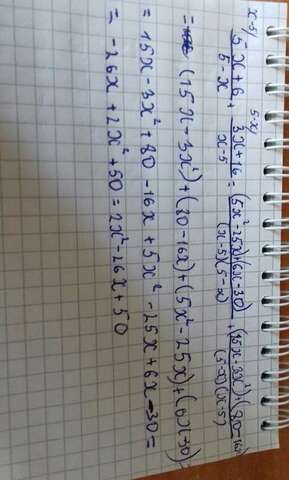 x-5/ 5x+6/5-x + 5-x/ 3x+16/x-5 = (5x²-25x)+(6x-30)/(x-5)(5-x) + (15x-3x²)+(80-16x)/(5-x)(x-5)
= (15x-3x²)+(80-16x)+(5x²-25x)+(6x-30)
= 15x-3x²+80-16x+5x²-25x+6x-30=
= -26x+2x²+50=2x²-26x+50